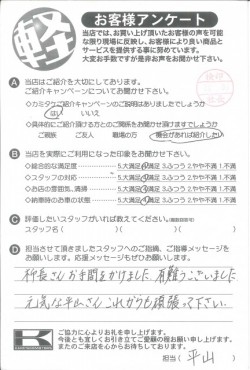 軽
お客様アンケート
当店では、お買い上げ頂いたお客様の声を可能
な限り現場に反映し、お客様により良い商品と
サービスを提供する事に努めています。
大変お手数ですが是非お声をお聞かせ下さい。
A 当店はご紹介を大切にしております。
ご紹介キャンペーンについてお聞かせ下さい。
◇カミタケご紹介キャンペーンのご説明はありましたでしょうか
はい いいえ
◇具体的にご紹介頂ける方とのご関係をお聞かせ頂けますでしょうか
ご親族 ご友人 職場の方 機会があれば紹介したい
B 当店を実際にご利用になった印象をお聞かせ下さい。
◇総合的な満足度 5.大満足 4.満足 3.ふつう 2.やや不満 1.不満
◇スタッフの対応 5.大満足 4.満足 3.ふつう 2.やや不満 1.不満
◇お店の雰囲気、清掃 5.大満足 4.満足 3.ふつう 2.やや不満 1.不満
◇納車時のお車の状態 5.大満足 4.満足 3.ふつう 2.やや不満 1.不満
C 評価したいスタッフがいれば教えてください。
スタッフ名( ) スタッフ名( )
D 担当させて頂きましたスタッフへのご指摘、ご指導メッセージを
お願いします。応援メッセージもぜひお願いします。
お手間をかけました 有難うございました
元気な平山さんこれからも頑張って下さい。
ご協力に心よりお礼を申し上げます。
今後とも宜しくお引き立てご愛顧の程お願い申し上げます。
またのご来店を心からお待ちしております。
担当( 平山 )